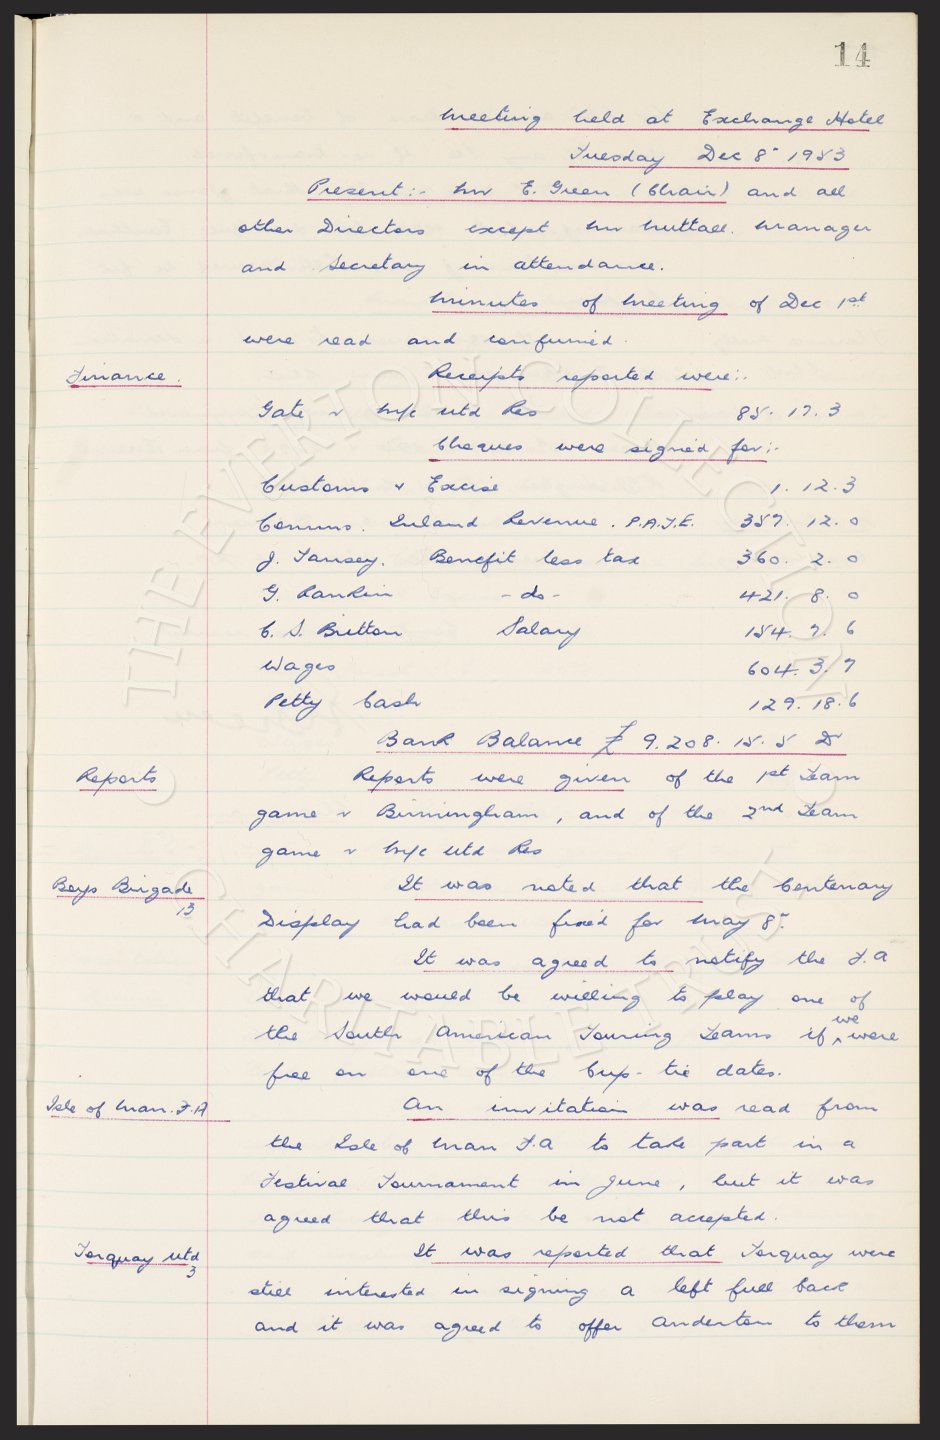 14
Meeting held at Exchange Hotel
Tuesday Dec 8" 1953
Present:- Mr E. Green (Chair) and all
other Directors except Mr Nuttall. Manager
and Secretary in attendance.
Minutes of Meeting of Dec 1st
were read and confirmed.
Finance. Receipts reported were:-
Gate v M/c Utd Res 85. 17. 3
Cheques were signed for:-
Customs & Excise 1. 12. 3
Comms. Inland Revenue. P.A.Y.E. 357. 12. 0
J. Tansey. Benefit less tax 360. 2. 0
G. Rankin - do - 421. 8. 0
C. S. Britton Salary 154. 7. 6
Wages 604. 3. 7
Petty Cash 129. 18. 6
Bank Balance £ 9.208. 15. 5 Dr
Reports Reports were given of the 1st Team
game v Birmingham, and of the 2nd Team
game v M/c Utd Res
Boys Brigade 13 It was noted that the Centenary
Display had been fixed for May 8".
It was agreed to notify the F.A
that we would be willing to play one of
the South American Touring Teams if we were
free on one of the Cup-tie dates.
Isle of Man. F.A An invitation was read from
the Isle of Man F.A to take part in a
Festival Tournament in June, but it was
agreed that this be not accepted.
Torquay Utd 3 It was reported that Torquay were
still interested in signing a left full back
and it was agreed to offer Anderton to them
© THE EVERTON COLLECTION
CHARITABLE TRUST